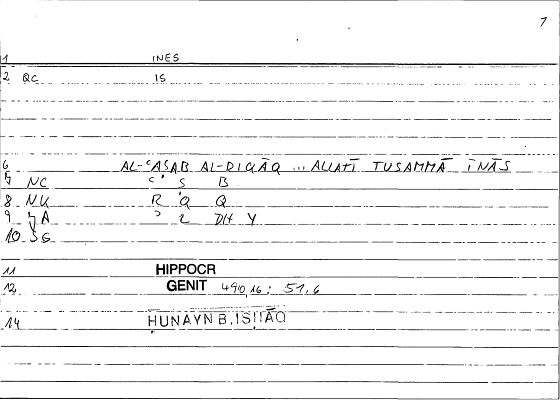 7
1 INES
2 QC IS
6 AL-ʿAṢAB AL-DIQĀQ ... ALLATĪ TUSAMMĀ ĪNĀS
7 NC ʿ Ṣ B
8 NU R Q Q
9 ʾ L DH Y
10 SG
11 HIPPOCR
12 GENIT 490,16; 51,6
14 ḤUNAYN B. ISḤĀQ